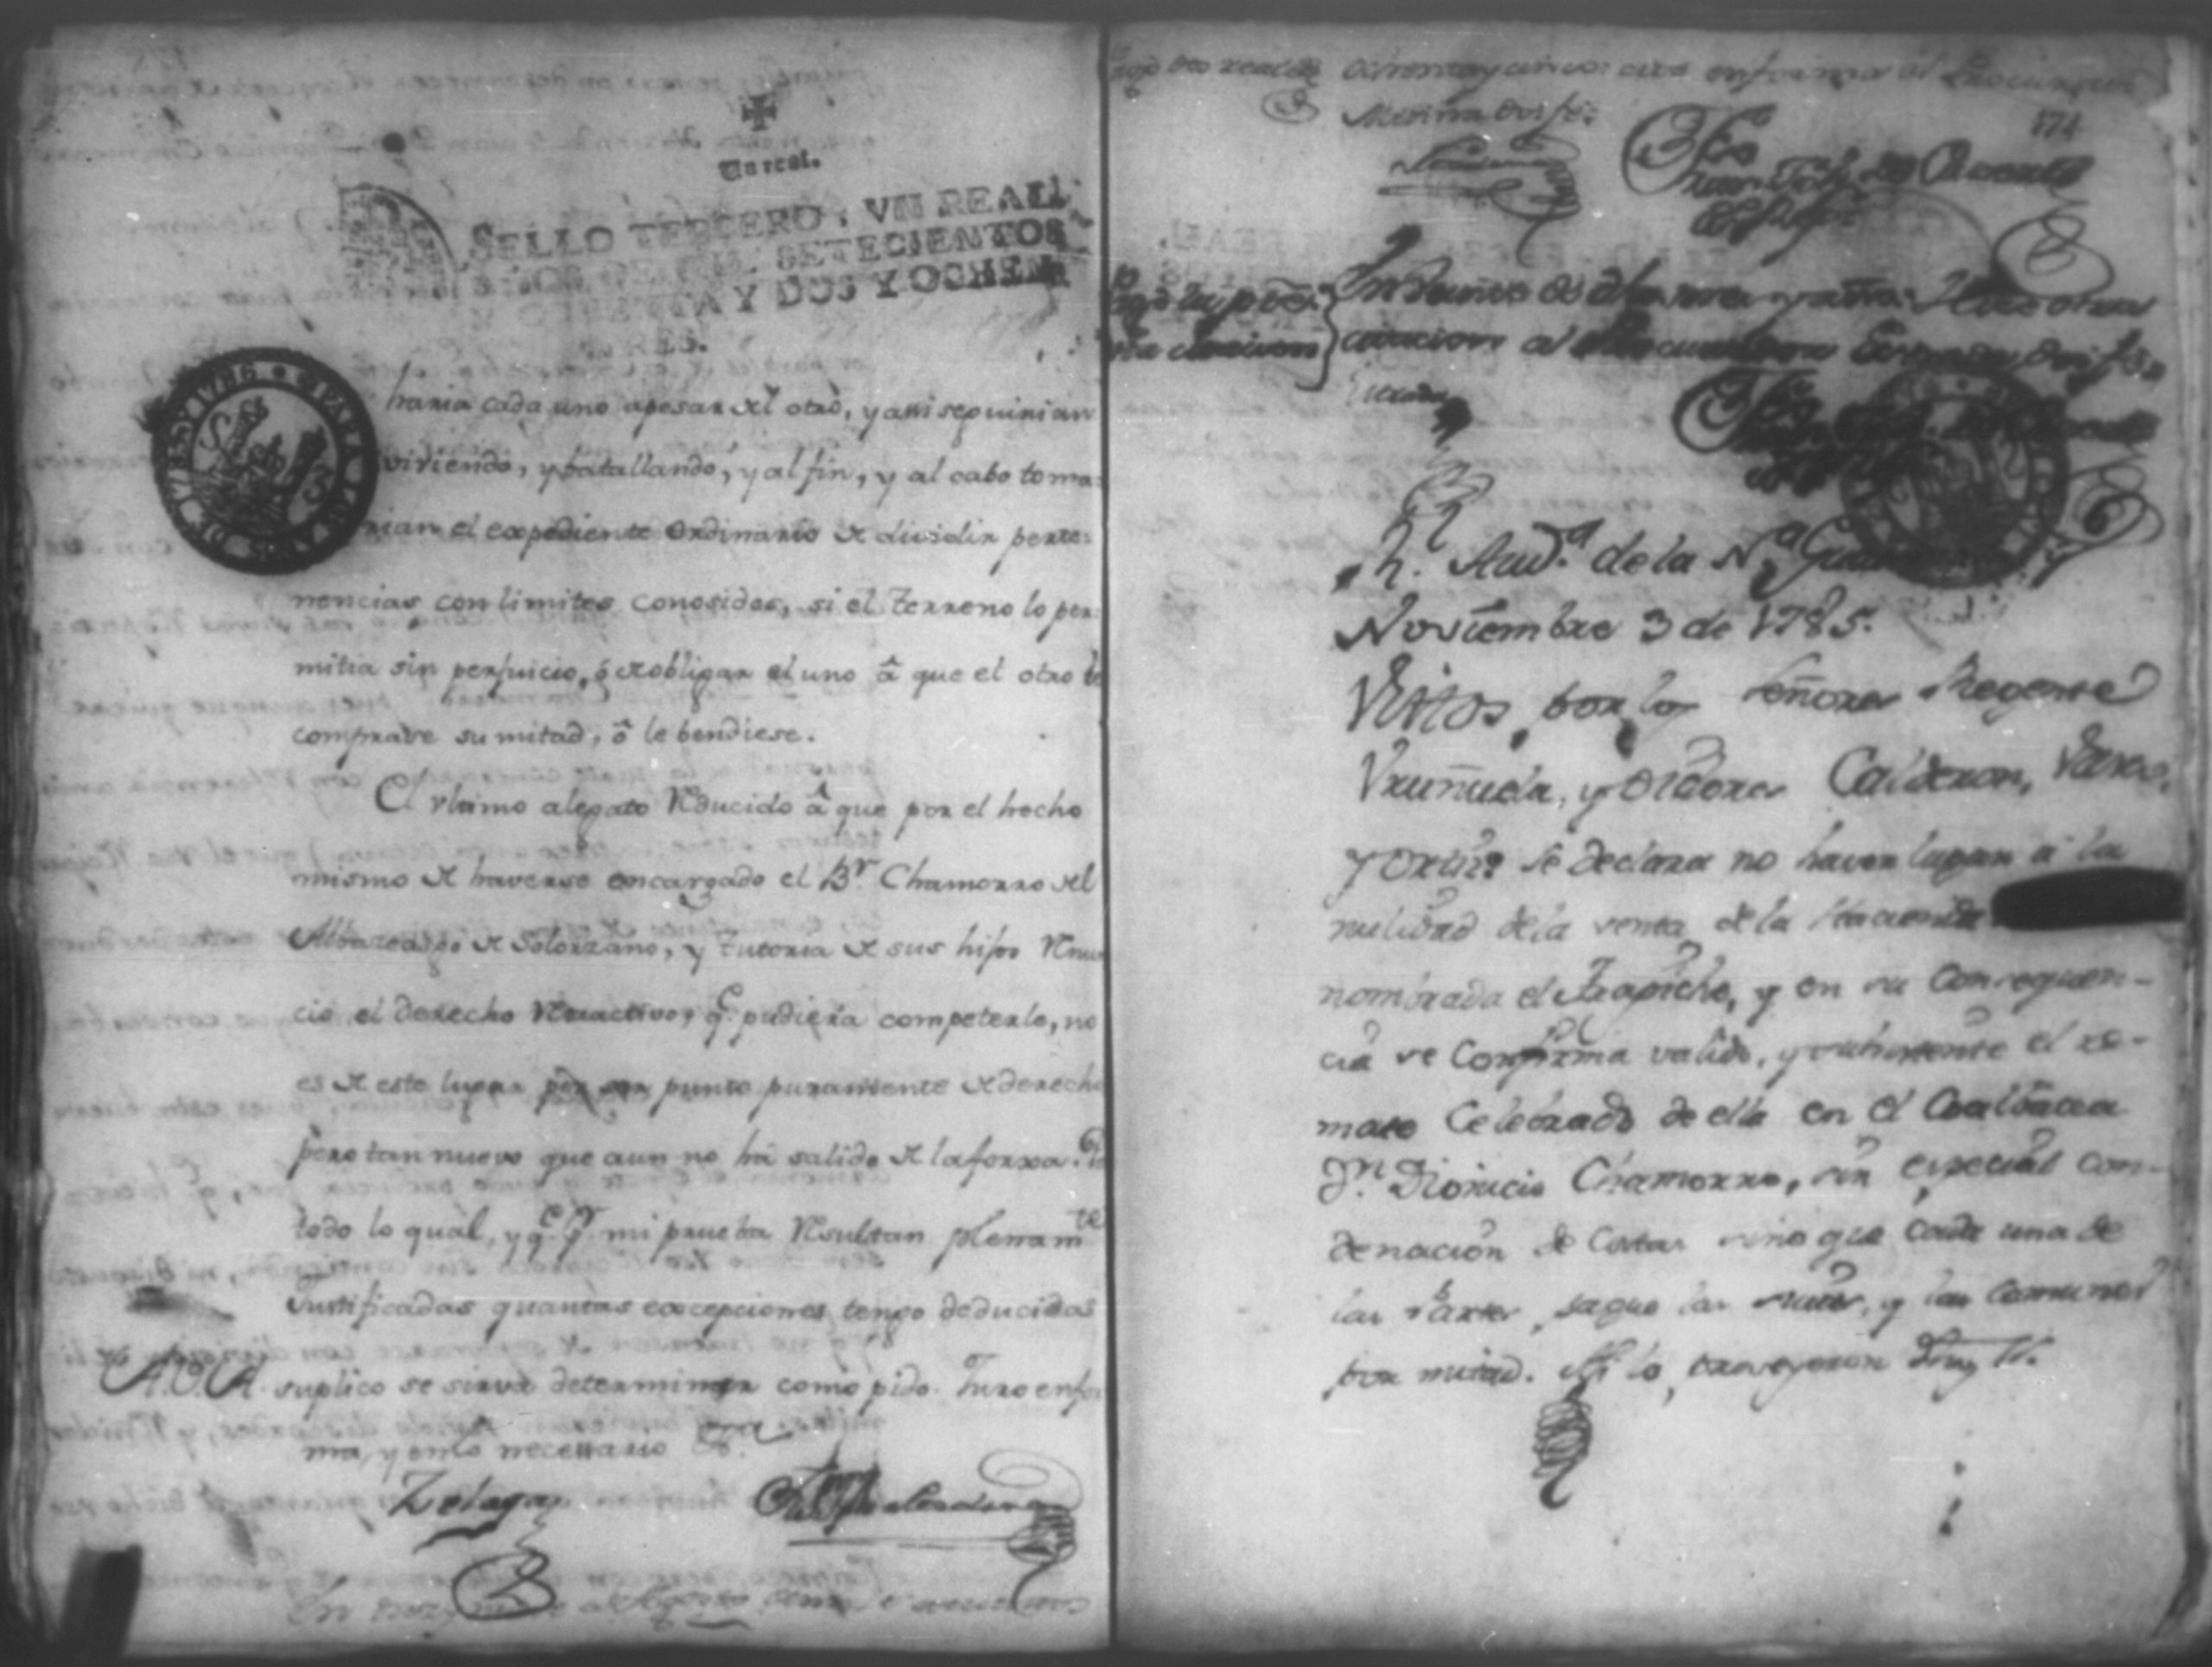 Un real.
SELLO TERCERO, VN REAL,
SETECIENTOS
Y DOS Y OCHEN
RES.
haria cada uno apesar del otro, y assi seguirian
viviendo, y batallando, y al fin, y al cabo toma-
rian el expediente ordinario de dividir perte-
nencias con limites conosidos, si el terreno lo per-
mitia sin perjuicio, ó de obligar el uno â que el otro le
comprase su mitad, ô le bendiese.
El vltimo alegato reducido â que por el hecho
mismo de haverse encargado el Br. Chamorro del
Albaceasgo de Solorzano, y tutoria de sus hijos renun
cio el derecho retractivo, q.e pudiera competerle, no
es de este lugar por ser punto puramente de derecho
pero tan nuevo que aun no há salido de la forxa.
todo lo qual, y q.e pr. mi prueba resultan plenam.te
Justificadas quantas excepciones tengo deducidas
A.V.A. suplico se sirva determinar como pido. Juro en for
ma, y en lo necessario &.
Zelaya
En de Agosto
ochenta y cinco: otra en forma al Procurador
Medina doi fé:
174
En de dho mes y año: hize otra
citacion al Procurador Estrada doi fee
Estrada
R. Aud.a de la N.a
Noviembre 3 de 1785.
Vistos por los señores Regente
Uruñuela, y Oidores Calderon, 
y Ortiz se declara no haver lugar a la
nulidad de la venta de la Hacienda
nombrada el Trapiche, y en su consequen-
cia se Confirma valido, y subsistente el re-
mate Celebrado de ella en el Coalbacea
Dn. Dionicio Chamorro, sin especial con-
denación de Costas sino que cada una de
las Partes pague las suias, y las comunes
por mitad. Asi lo proveyeron